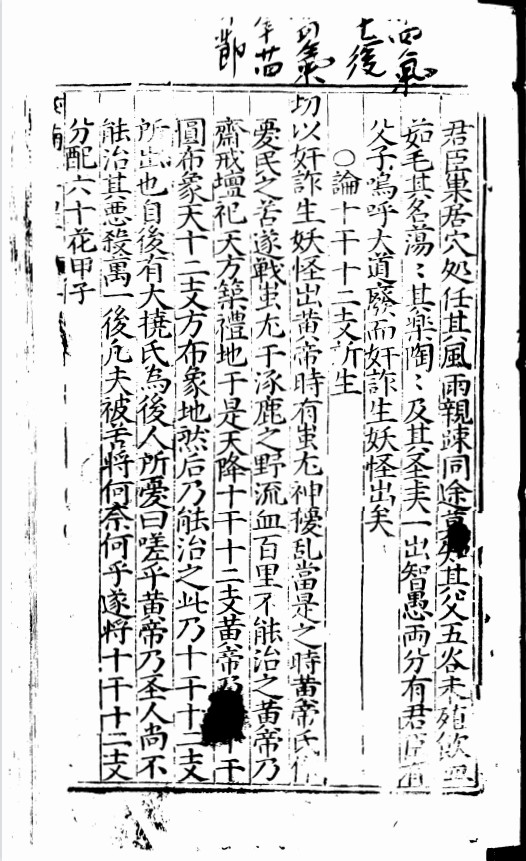 四氣
七後
四氣
年昔
節
君臣巢居穴処任其風雨親踈同途莫知其父五谷未殖飲血
茹毛其名蕩〻其樂陶〻及其圣主一出智愚兩分有君臣有
父子嗚呼大道廢而奸詐生妖怪出矣
○論十干十二支所生
切以奸詐生妖怪出黄帝時有蚩尤神擾乱當是之時黄帝氏
憂民之苦遂戰蚩尤于涿鹿之野流血百里不能治之黄帝乃
齋戒壇祀天方築禮地于是天降十干十二支黄帝乃十干
圓布象天十二支方布象地然后乃能治之此乃十干十二支
所出也自後有大撓氏為後人所憂曰嗟乎黄帝乃圣人尚不
能治其悪殺萬一後凡夫被苦將何奈何乎遂将十干十二支
分配六十花甲子